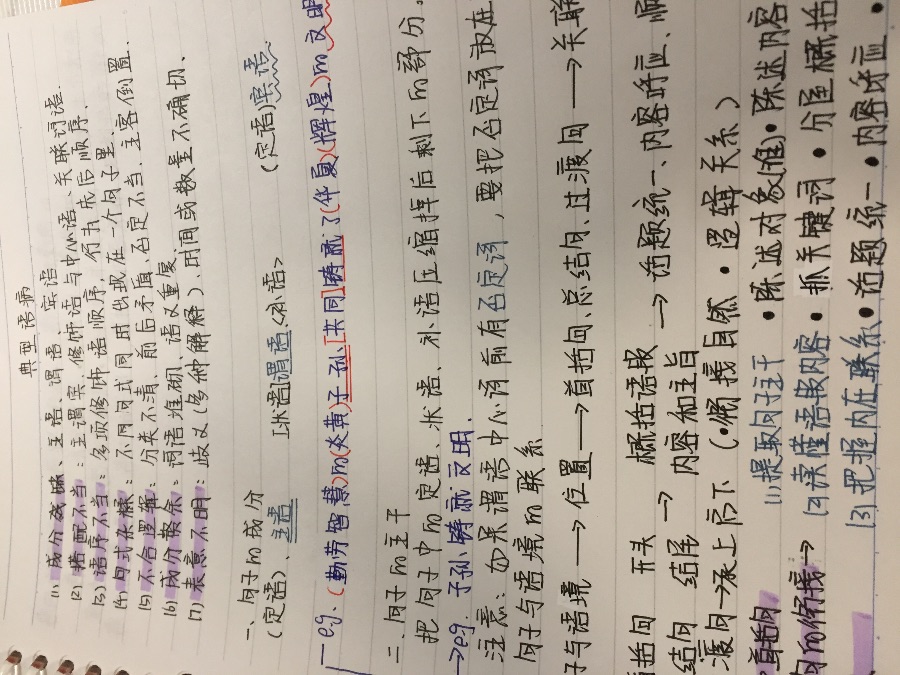 典型语病
(1) 成分残缺、主语、谓语、宾语
(2) 搭配不当：主谓宾、修饰语与中心语、关联词语.
(3) 语序不当：多项修饰语顺序、行为先后顺序.
(4) 句式杂糅：不同句式同时出现在一个句子里.
(5) 不合逻辑：分类不清、前后矛盾、否定不当、主客倒置.
(6) 成分赘余：词语堆砌、语义重复
(7) 表意不明：歧义(多种解释)、时间或数量不确切、
一、句子的成分
(定语)、主语 [状语]谓语<补语> (定语)宾语
eg. (勤劳智慧)的(炎黄)子孙[共同]铸就了(华夏)(辉煌)的文明
二、句子的主干
把句子中的定语、状语、补语压缩掉后剩下的部分.
→eg. 子孙铸就文明.
注意：如果谓语中心词前有否定词，要把否定词放在
句子与语境的联系
子与语境→位置→首括句、总结句、过渡句→关联
括句 开头 概括语段→话题统一、内容呼应、顺
结句 结尾→内容和主旨
渡句→承上启下(•衔接自然•逻辑关系)
首括句 (1)提取句主干 •陈述对象(谁)•陈述内容
句的衔接→ (2)读懂语段内容•抓关键词•分层概括
(3)把握内在联系•话题统一•内容呼应•